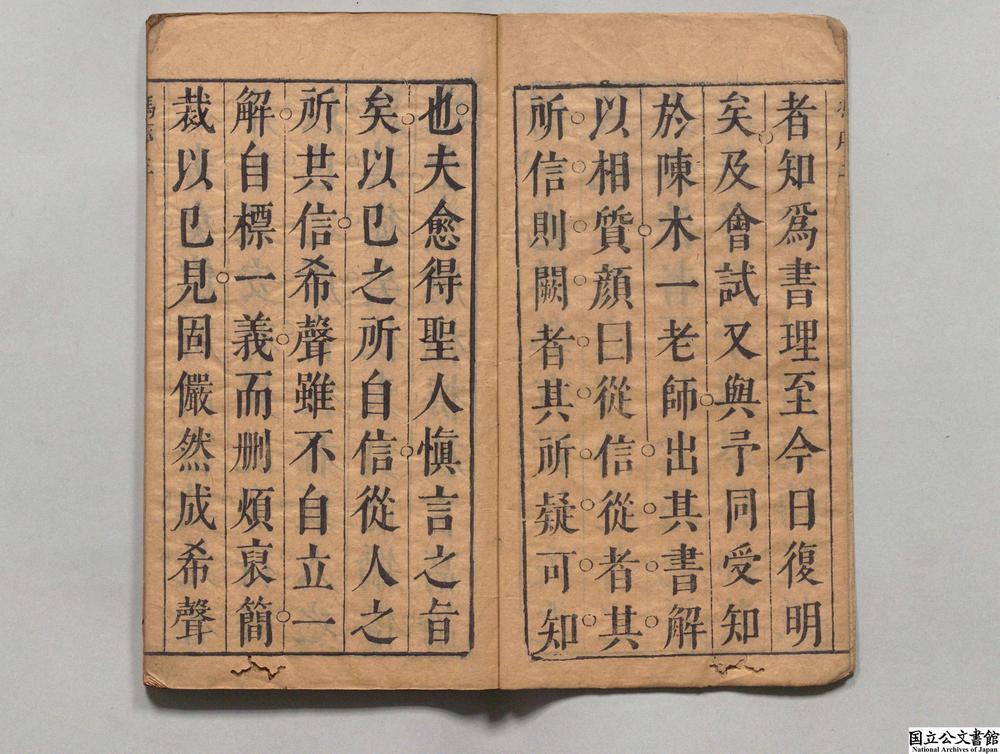 者知爲書理至今日復明
矣及會試又與予同受知
於陳木一老師出其書解
以相質顏曰從信從者其
所信則闕者其所疑可知
也夫愈得聖人愼言之旨
矣以已之所自信從人之
所共信希聲雖不自立一
解自標一義而刪煩裒簡
裁以已見固儼然成希聲
国立公文書館
National Archives of Japan